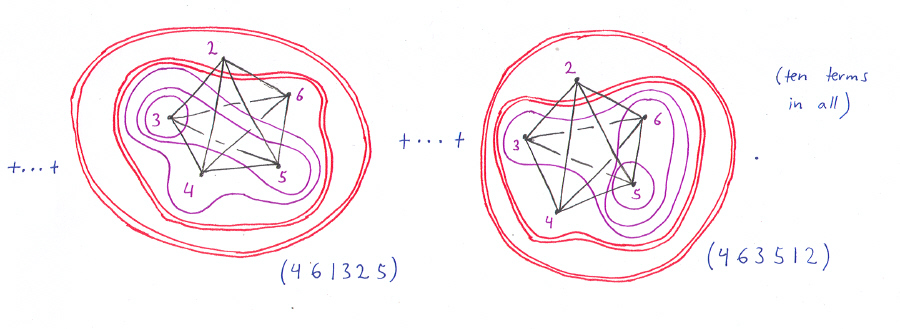 2
6
3
5
4
+...+
(461325)
+...+
2
6
3
5
4
(463512)
(ten terms
in all)
.